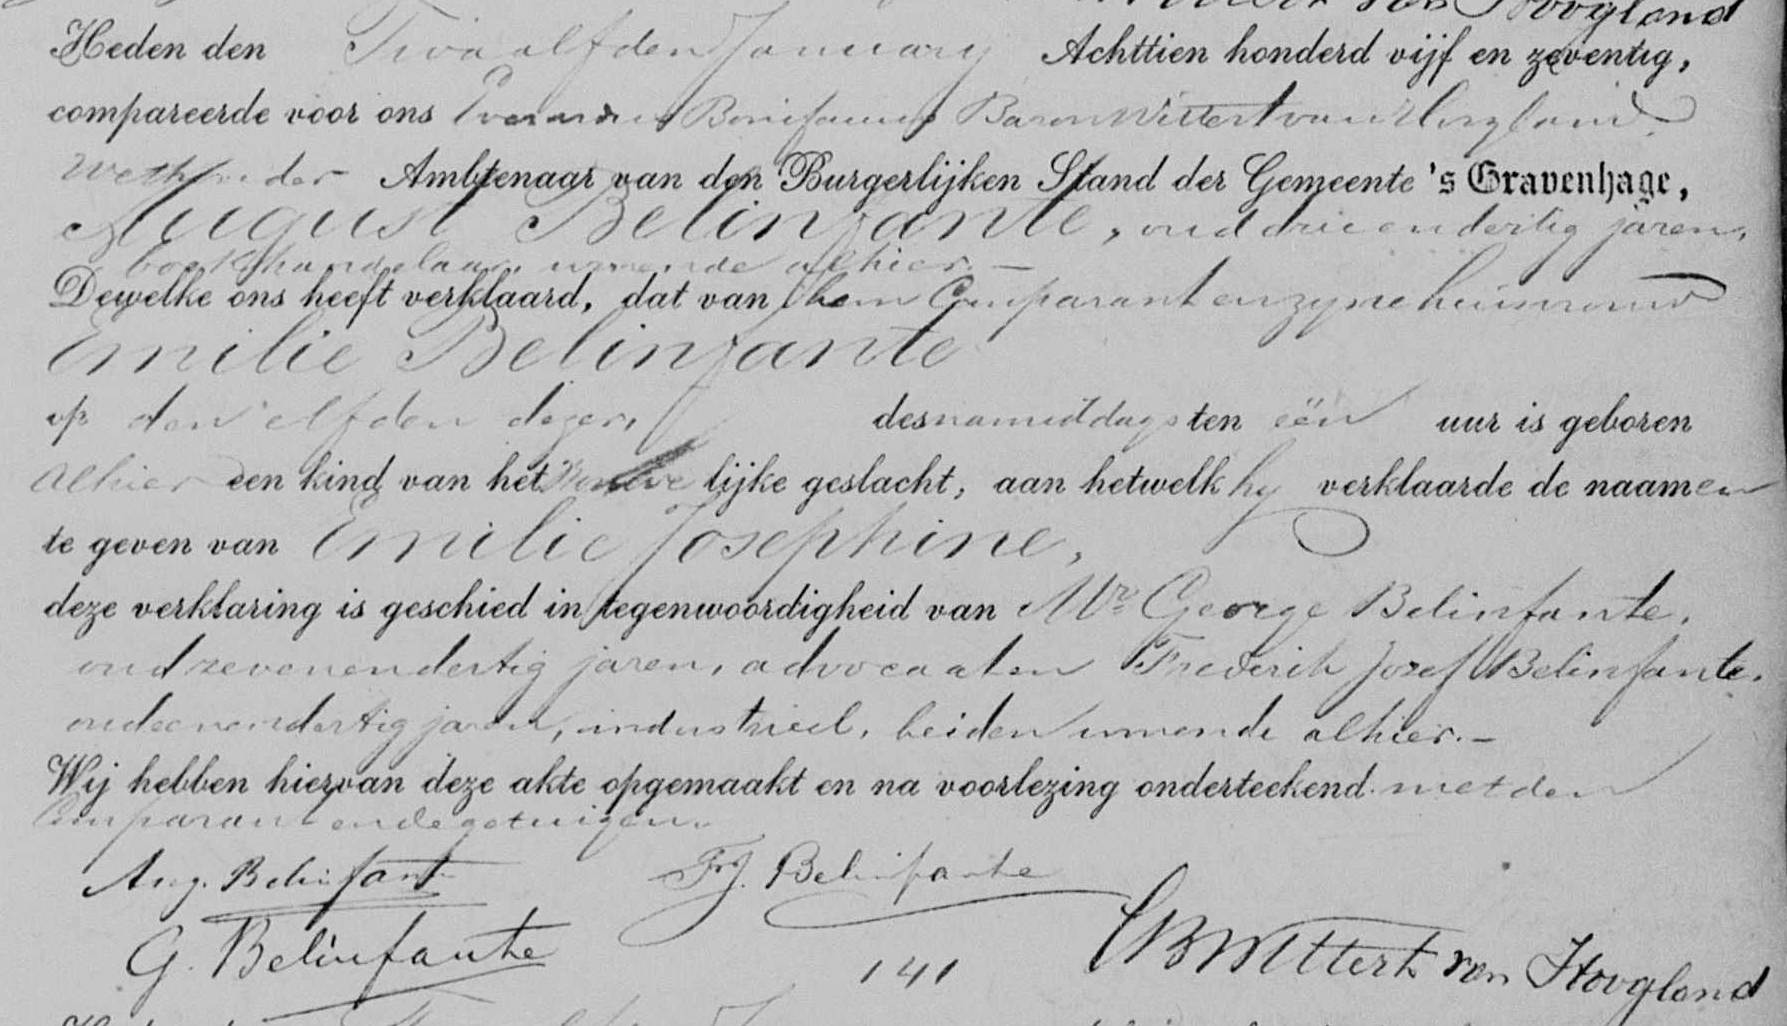 van Hoogland
Heden den Twaalfden January Achttien honderd vijf en zeventig,
compareerde voor ons Bonifacius Baron Wittert van Hoogland
Wethouder Ambtenaar van den Burgerlijken Stand der Gemeente 's Gravenhage,
August Belinfante, oud drie en dertig jaren,
boekhandelaar, wonende alhier. —
Dewelke ons heeft verklaard, dat van hem Comparant en zyne huisvrouw
Emilie Belinfante
op den elfden dezer, des namiddags ten één uur is geboren
alhier een kind van het lijke geslacht, aan hetwelk hy verklaarde de naamen
te geven van Emilie Josephine,
deze verklaring is geschied in tegenwoordigheid van Mr. George Belinfante,
oud zevenendertig jaren, advocaat en Frederik Jozef Belinfante,
oud eenendertig jaren, industrieel, beiden wonende alhier. —
Wij hebben hiervan deze akte opgemaakt en na voorlezing onderteekend met den
Comparant en de getuigen.
Aug. Belinfante Fr J. Belinfante
G. Belinfante 141 EBWittert van Hoogland